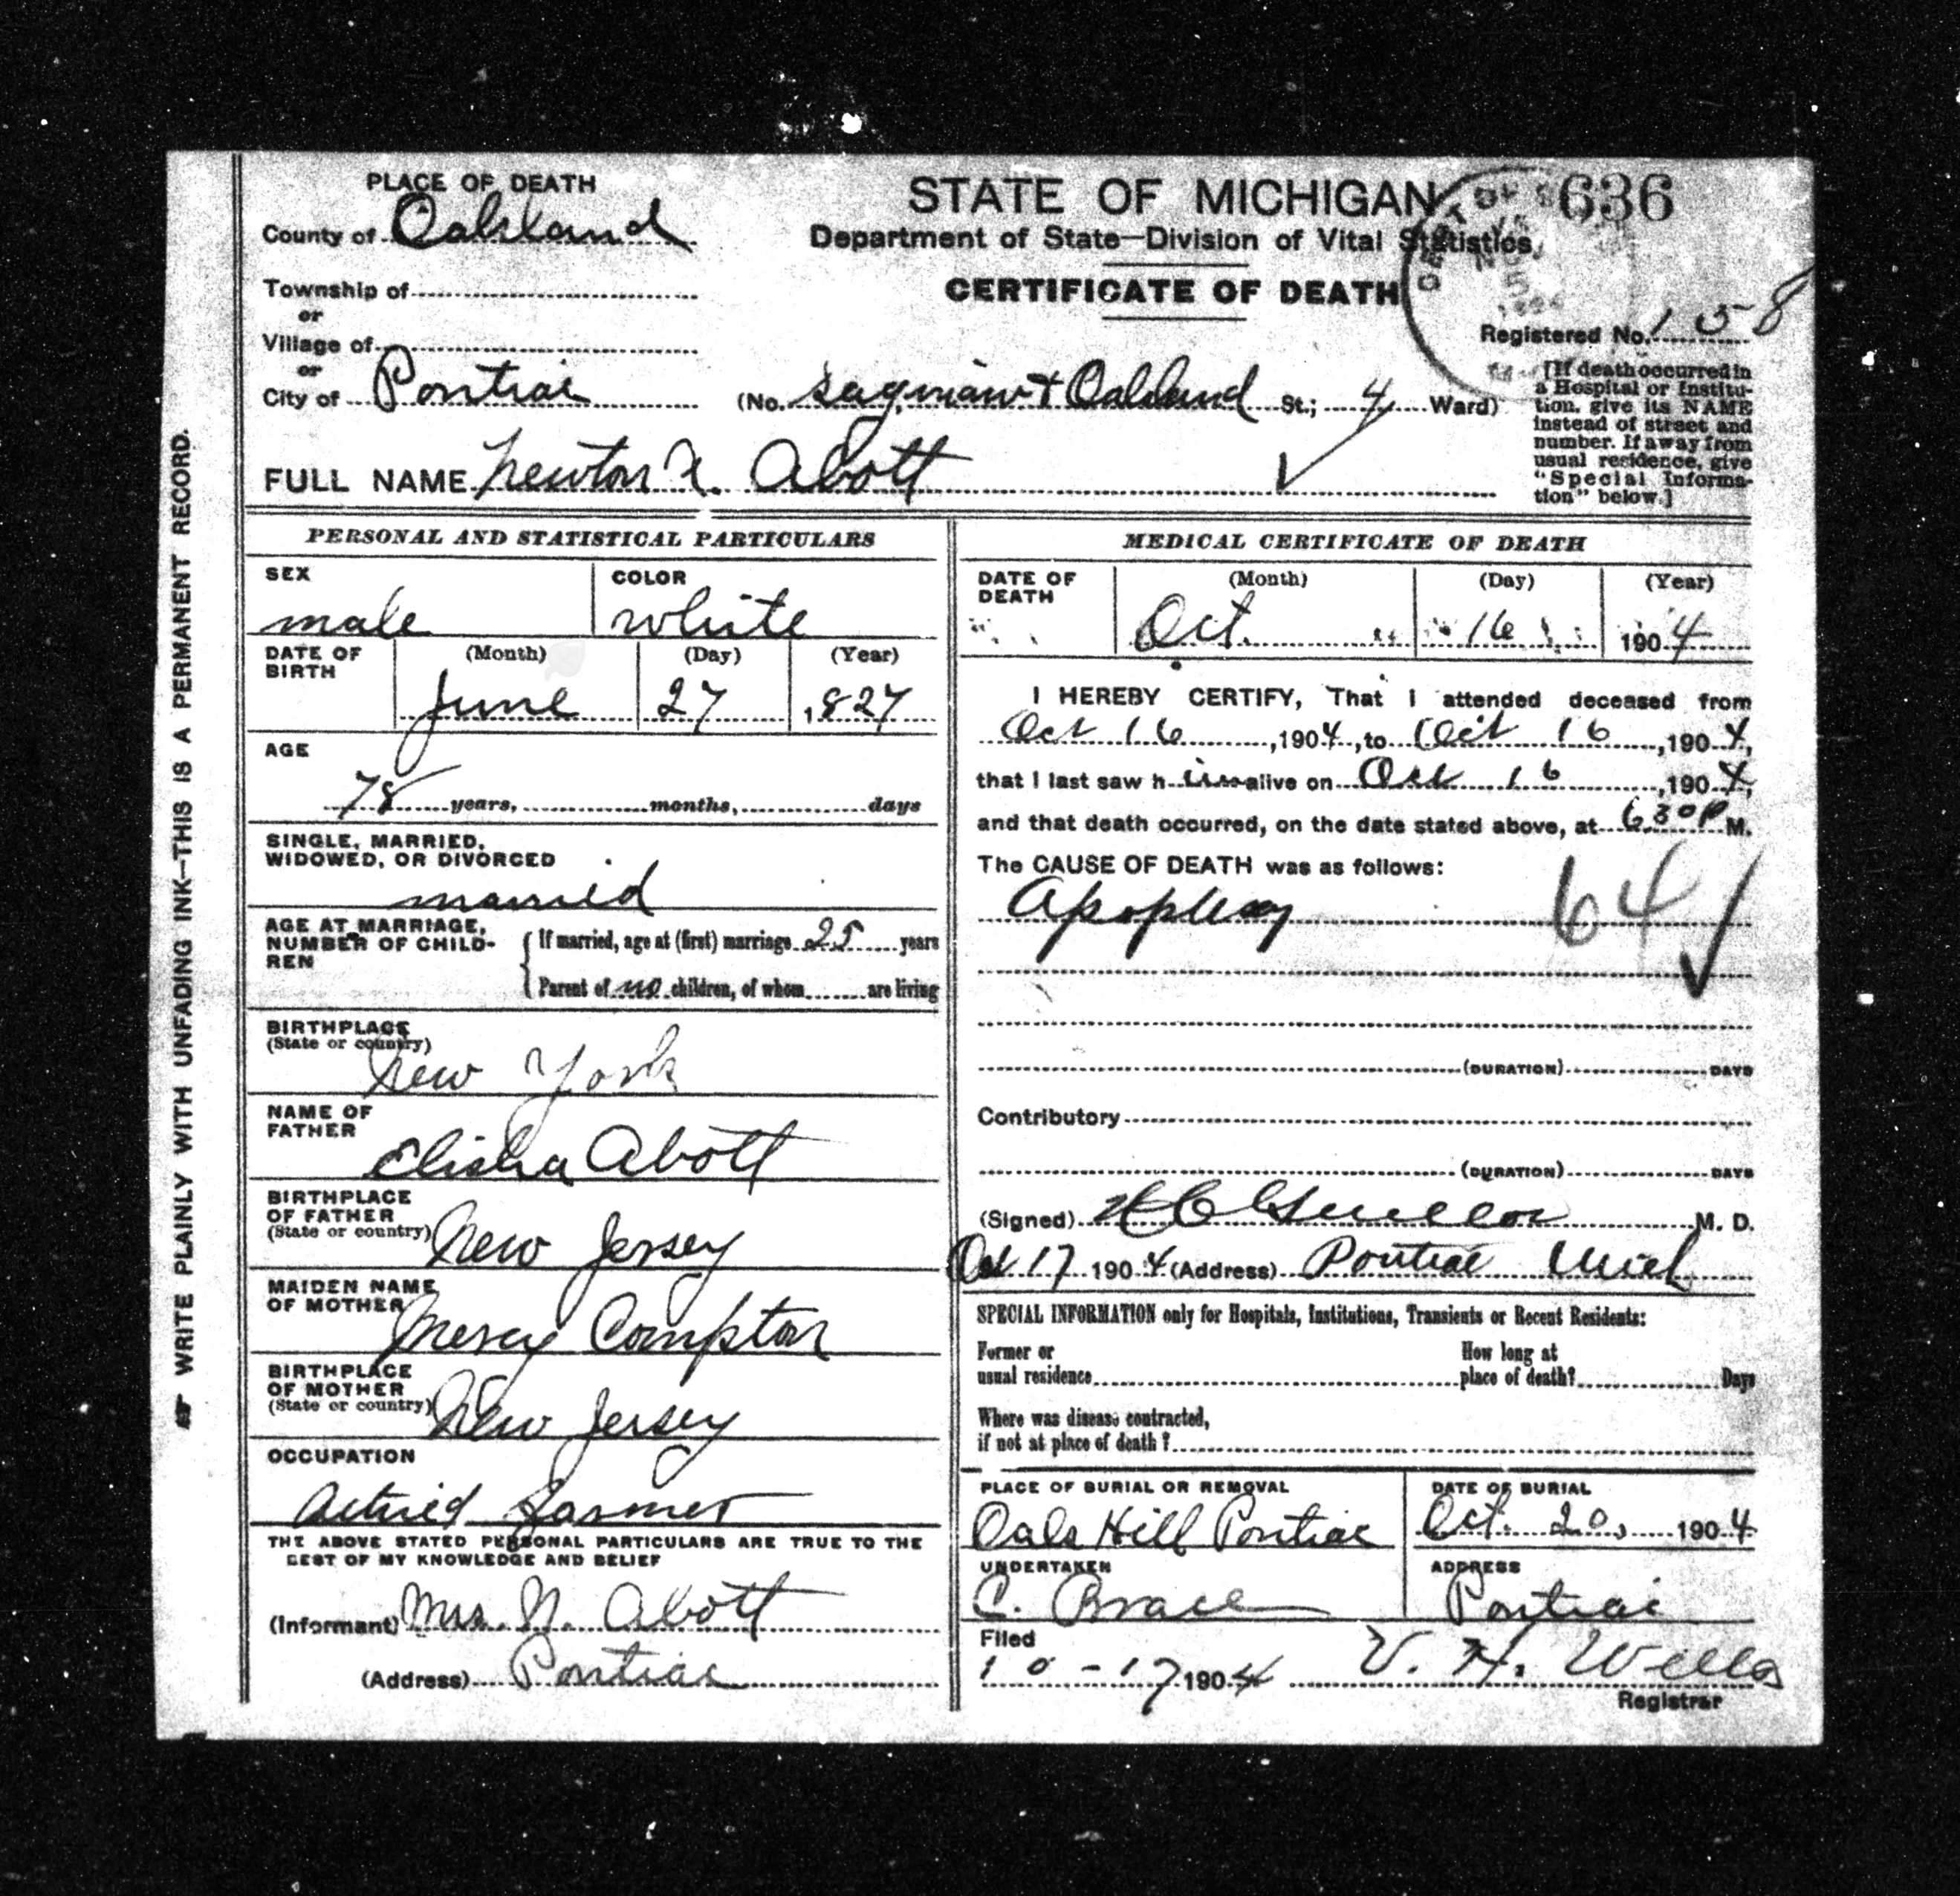 PLACE OF DEATH
County of Oakland
Township of
or
Village of
or
City of Pontiac
STATE OF MICHIGAN
Department of State—Division of Vital Statistics
CERTIFICATE OF DEATH
636
Registered No. 158
(No. Saginaw & Oakland St.; 4 Ward)
[If death occurred in
a Hospital or Institu-
tion, give its NAME
instead of street and
number. If away from
usual residence, give
"Special Informa-
tion" below.]
FULL NAME Newton Abott
WRITE PLAINLY WITH UNFADING INK—THIS IS A PERMANENT RECORD.
PERSONAL AND STATISTICAL PARTICULARS
SEX
male
COLOR
white
DATE OF
BIRTH
(Month) (Day) (Year)
June 27 1827
AGE
78 years, months, days
SINGLE, MARRIED,
WIDOWED, OR DIVORCED
married
AGE AT MARRIAGE,
NUMBER OF CHILD-
REN
If married, age at (first) marriage 25 years
Parent of no children, of whom are living
BIRTHPLACE
(State or country)
New York
NAME OF
FATHER
Elisha Abott
BIRTHPLACE
OF FATHER
(State or country)
New Jersey
MAIDEN NAME
OF MOTHER
Mercy Compton
BIRTHPLACE
OF MOTHER
(State or country)
New Jersey
OCCUPATION
Farmer
THE ABOVE STATED PERSONAL PARTICULARS ARE TRUE TO THE
BEST OF MY KNOWLEDGE AND BELIEF
(Informant) Mrs. N. Abott
(Address) Pontiac
MEDICAL CERTIFICATE OF DEATH
DATE OF
DEATH
(Month) (Day) (Year)
Oct. 16 1904
I HEREBY CERTIFY, That I attended deceased from
Oct 16, 1904, to Oct 16, 1904,
that I last saw him alive on Oct 16, 1904,
and that death occurred, on the date stated above, at 630P M.
The CAUSE OF DEATH was as follows:
Apoplexy
64
(DURATION) DAYS
Contributory
(DURATION) DAYS
(Signed) M. D.
Oct 17 1904 (Address) Pontiac Mich
SPECIAL INFORMATION only for Hospitals, Institutions, Transients or Recent Residents:
Former or
usual residence
How long at
place of death? Days
Where was disease contracted,
if not at place of death?
PLACE OF BURIAL OR REMOVAL
Oak Hill Pontiac
DATE OF BURIAL
Oct. 20, 1904
UNDERTAKER
C. Brace
ADDRESS
Pontiac
Filed
10-17 1904 V. H. Wells
Registrar